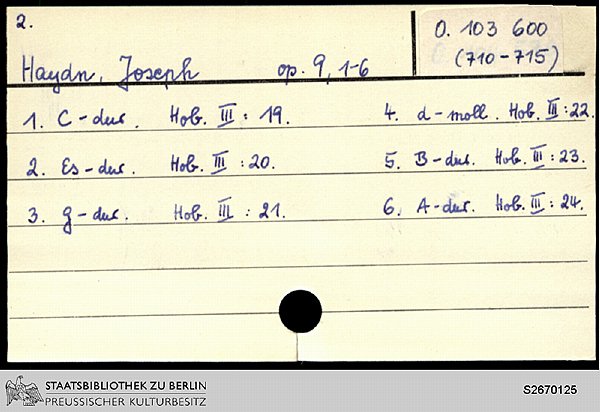 2.
O. 103 600
(710-715)
Haydn, Joseph op. 9, 1-6
1. C-dur. Hob. III: 19.
2. Es-dur. Hob. III: 20.
3. g-dur. Hob. III: 21.
4. d-moll. Hob. III: 22.
5. B-dur. Hob. III: 23.
6. A-dur. Hob. III: 24.
STAATSBIBLIOTHEK ZU BERLIN
PREUSSISCHER KULTURBESITZ
S2670125